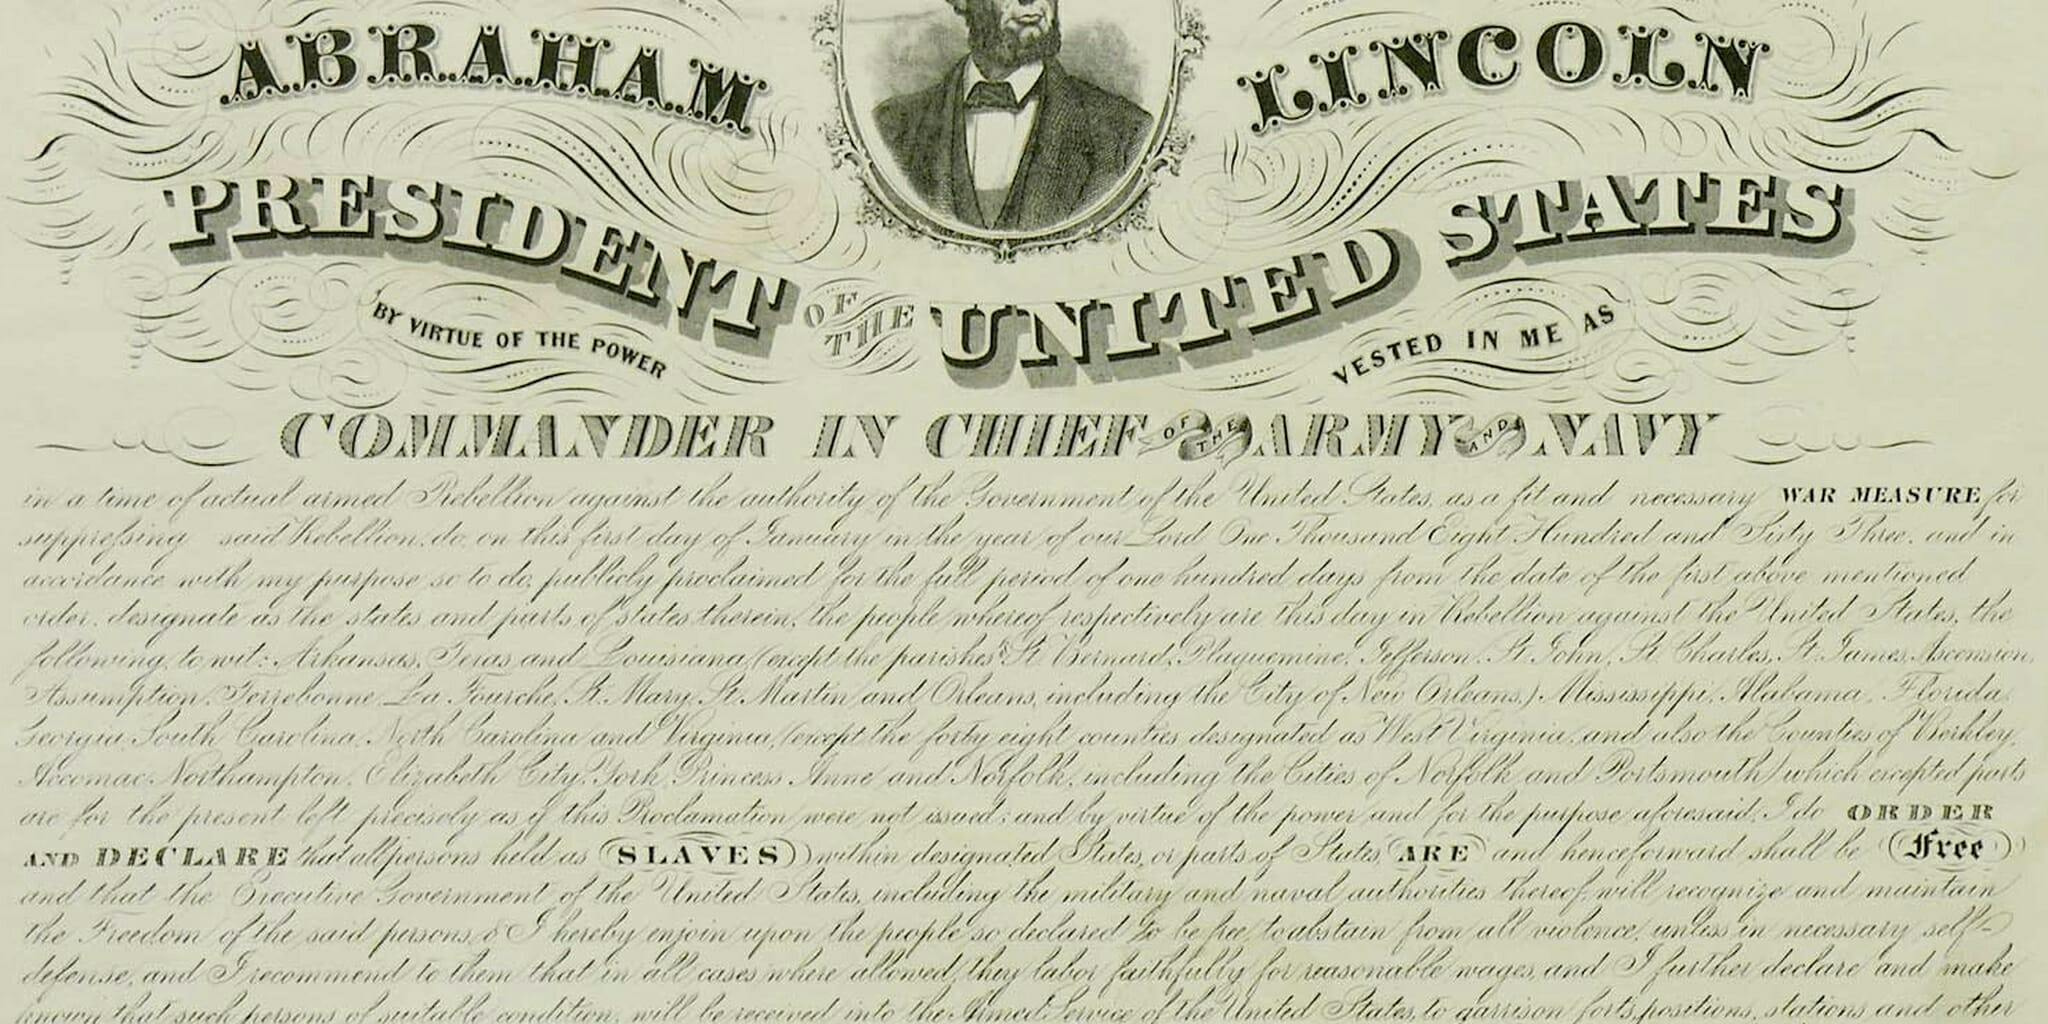 ABRAHAM LINCOLN
PRESIDENT OF THE UNITED STATES
BY VIRTUE OF THE POWER VESTED IN ME AS
COMMANDER IN CHIEF OF THE ARMY AND NAVY
in a time of actual armed Rebellion against the authority of the Government of the United States, as a fit and necessary WAR MEASURE for
suppressing said Rebellion, do, on this first day of January in the year of our Lord One Thousand Eight Hundred and Sixty Three, and in
accordance with my purpose so to do, publicly proclaimed for the full period of one hundred days from the date of the first above mentioned
order, designate as the states and parts of states therein, the people whereof respectively are this day in Rebellion against the United States, the
following, to wit: Arkansas, Texas and Louisiana, (except the parishes of St. Bernard, Plaquemine, Jefferson, St. John, St. Charles, St. James, Ascension,
Assumption, Terrebonne, La Fourche, St. Mary, St. Martin and Orleans, including the City of New Orleans,) Mississippi, Alabama, Florida,
Georgia, South Carolina, North Carolina and Virginia, (except the forty eight counties designated as West Virginia, and also the Counties of Berkley,
Accomac, Northampton, Elizabeth City, York, Princess Anne and Norfolk, including the Cities of Norfolk and Portsmouth) which excepted parts
are for the present left precisely as if this Proclamation were not issued; and by virtue of the power and for the purpose aforesaid, I do ORDER
AND DECLARE that all persons held as SLAVES within designated States, or parts of States, ARE and henceforward shall be Free
and that the Executive Government of the United States, including the military and naval authorities thereof, will recognize and maintain
the Freedom of the said persons, & I hereby enjoin upon the people so declared to be free, to abstain from all violence, unless in necessary self-
defense, and I recommend to them that in all cases where allowed, they labor faithfully for reasonable wages, and I further declare and make
known that such persons of suitable condition, will be received into the Armed Service of the United States, to garrison forts, positions, stations and other